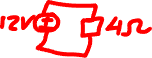 12V 4Ω